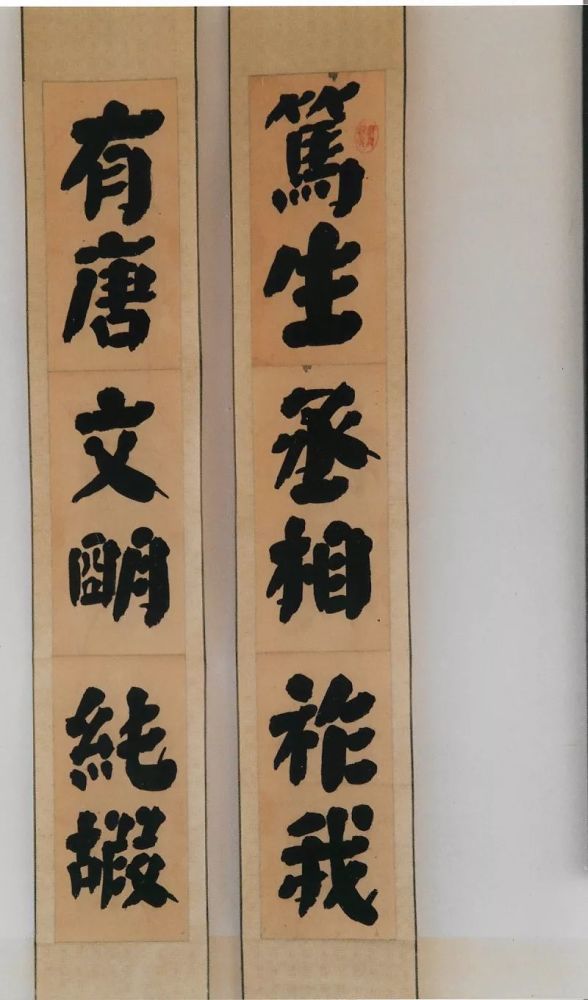 篤生丞相祚我
有唐文朙純嘏